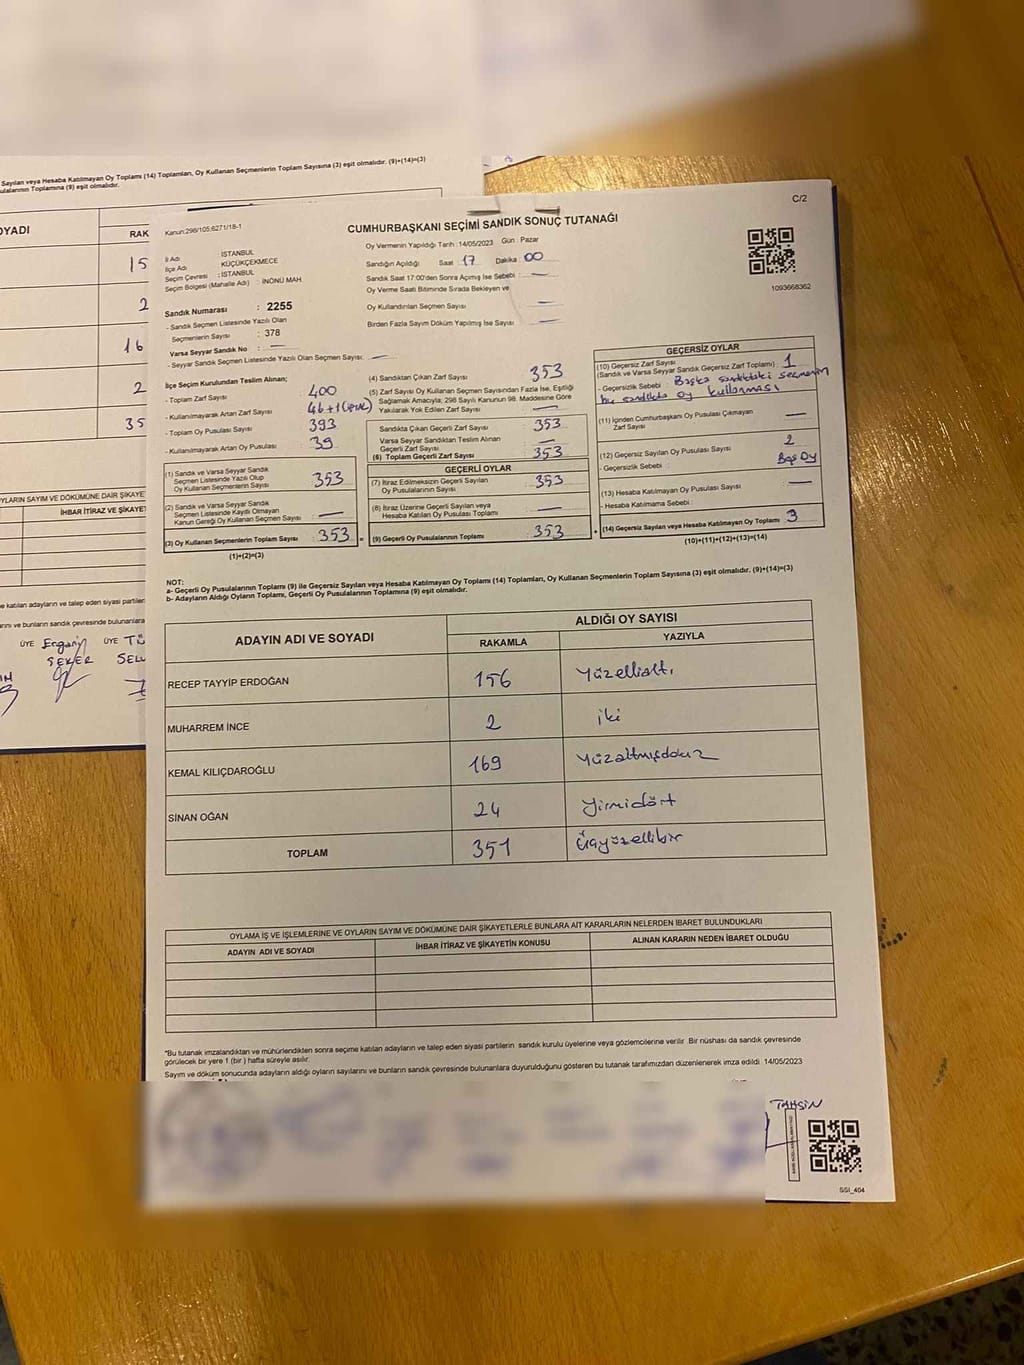 Sayılan veya Hesaba Katılmayan Oy Toplamı (14) Toplamları, Oy Kullanan Seçmenlerin Toplam Sayısına (3) eşit olmalıdır. (9)+(14)=(3)
Toplamına (9) eşit olmalıdır.
OYADI
RAK
15
2
16
2
35
OYLARIN SAYIM VE DÖKÜMÜNE DAİR ŞİKAYE
İHBAR İTİRAZ VE ŞİKAYET
e katılan adayların ve talep eden siyasi partiler
ÜYE Ergarin ÜYE
ŞEKER SELL
C/2
Kanun:298/105;6271/18-1
CUMHURBAŞKANI SEÇİMİ SANDIK SONUÇ TUTANAĞI
İl Adı : İSTANBUL
İlçe Adı : KÜÇÜKÇEKMECE
Seçim Çevresi : İSTANBUL
Seçim Bölgesi (Mahalle Adı) : İNÖNÜ MAH.
Sandık Numarası : 2255
- Sandık Seçmen Listesinde Yazılı Olan
Seçmenlerin Sayısı : 378
Varsa Seyyar Sandık No : —
- Seyyar Sandık Seçmen Listesinde Yazılı Olan Seçmen Sayısı: —
Oy Vermenin Yapıldığı Tarih : 14/05/2023 Gün : Pazar
Sandığın Açıldığı Saat : 17 Dakika : 00
Sandık Saat 17:00'den Sonra Açılmış İse Sebebi : —
Oy Verme Saati Bitiminde Sırada Bekleyen ve
Oy Kullandırılan Seçmen Sayısı —
Birden Fazla Sayım Döküm Yapılmış İse Sayısı : —
1093668362
İlçe Seçim Kurulundan Teslim Alınan;
- Toplam Zarf Sayısı : 400
- Kullanılmayarak Artan Zarf Sayısı : 46+1(iptal)
- Toplam Oy Pusulası Sayısı : 393
- Kullanılmayarak Artan Oy Pusulası : 39
(1) Sandık ve Varsa Seyyar Sandık
Seçmen Listesinde Yazılı Olup
Oy Kullanan Seçmenlerin Sayısı : 353
(2) Sandık ve Varsa Seyyar Sandık
Seçmen Listesinde Kayıtlı Olmayan
Kanun Gereği Oy Kullanan Seçmen Sayısı : —
(3) Oy Kullanan Seçmenlerin Toplam Sayısı : 353
(1)+(2)=(3)
(4) Sandıktan Çıkan Zarf Sayısı : 353
(5) Zarf Sayısı Oy Kullanan Seçmen Sayısından Fazla İse, Eşitliği
Sağlamak Amacıyla, 298 Sayılı Kanunun 98. Maddesine Göre
Yakılarak Yok Edilen Zarf Sayısı : —
Sandıkta Çıkan Geçerli Zarf Sayısı : 353
Varsa Seyyar Sandıktan Teslim Alınan
Geçerli Zarf Sayısı : —
(6) Toplam Geçerli Zarf Sayısı : 353
GEÇERLİ OYLAR
(7) İtiraz Edilmeksizin Geçerli Sayılan
Oy Pusulalarının Sayısı : 353
(8) İtiraz Üzerine Geçerli Sayılan veya
Hesaba Katılan Oy Pusulası Toplamı : —
(9) Geçerli Oy Pusulalarının Toplamı : 353
GEÇERSİZ OYLAR
(10) Geçersiz Zarf Sayısı
(Sandık ve Varsa Seyyar Sandık Geçersiz Zarf Toplamı) : 1
- Geçersizlik Sebebi : Başka sandıktaki seçmenin
bu sandıkta oy kullanması
(11) İçinden Cumhurbaşkanı Oy Pusulası Çıkmayan
Zarf Sayısı —
(12) Geçersiz Sayılan Oy Pusulası Sayısı 2
- Geçersizlik Sebebi : Boş Oy
(13) Hesaba Katılmayan Oy Pusulası Sayısı —
- Hesaba Katılmama Sebebi :
(14) Geçersiz Sayılan veya Hesaba Katılmayan Oy Toplamı : 3
(10)+(11)+(12)+(13)=(14)
NOT:
a- Geçerli Oy Pusulalarının Toplamı (9) ile Geçersiz Sayılan veya Hesaba Katılmayan Oy Toplamı (14) Toplamları, Oy Kullanan Seçmenlerin Toplam Sayısına (3) eşit olmalıdır. (9)+(14)=(3)
b- Adayların Aldığı Oyların Toplamı, Geçerli Oy Pusulalarının Toplamına (9) eşit olmalıdır.
ADAYIN ADI VE SOYADI
ALDIĞI OY SAYISI
RAKAMLA YAZIYLA
RECEP TAYYİP ERDOĞAN 156 Yüzellialtı
MUHARREM İNCE 2 iki
KEMAL KILIÇDAROĞLU 169 Yüzaltmışdokuz
SİNAN OĞAN 24 Yirmidört
TOPLAM 351 Üçyüzellibir
OYLAMA İŞ VE İŞLEMLERİNE VE OYLARIN SAYIM VE DÖKÜMÜNE DAİR ŞİKAYETLERLE BUNLARA AİT KARARLARIN NELERDEN İBARET BULUNDUKLARI
ADAYIN ADI VE SOYADI İHBAR İTİRAZ VE ŞİKAYETİN KONUSU ALINAN KARARIN NEDEN İBARET OLDUĞU
*Bu tutanak imzalandıktan ve mühürlendikten sonra seçime katılan adayların ve talep eden siyasi partilerin sandık kurulu üyelerine veya gözlemcilerine verilir. Bir nüshası da sandık çevresinde
görülecek bir yere 1 (bir ) hafta süreyle asılır.
Sayım ve döküm sonucunda adayların aldığı oyların sayılarını ve bunların sandık çevresinde bulunanlara duyurulduğunu gösteren bu tutanak tarafımızdan düzenlenerek imza edildi. 14/05/2023
TAHSİN
SSI_404